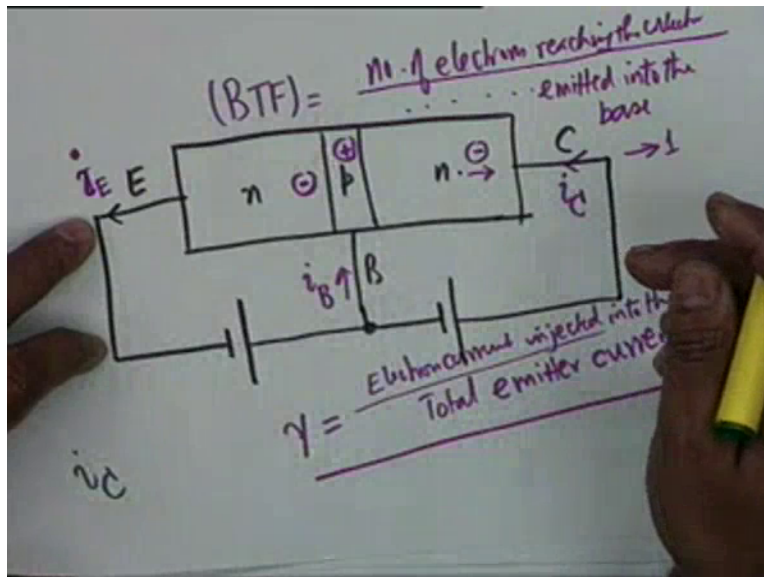 (BTF) = no. of electron reaching the
. . . . . . . emitted into the
base
i_E E n ⊖ ⊕ p n. ⊖ C → 1
i_C
i_B B
γ = Electron current injected into the
Total emitter curre
i_C